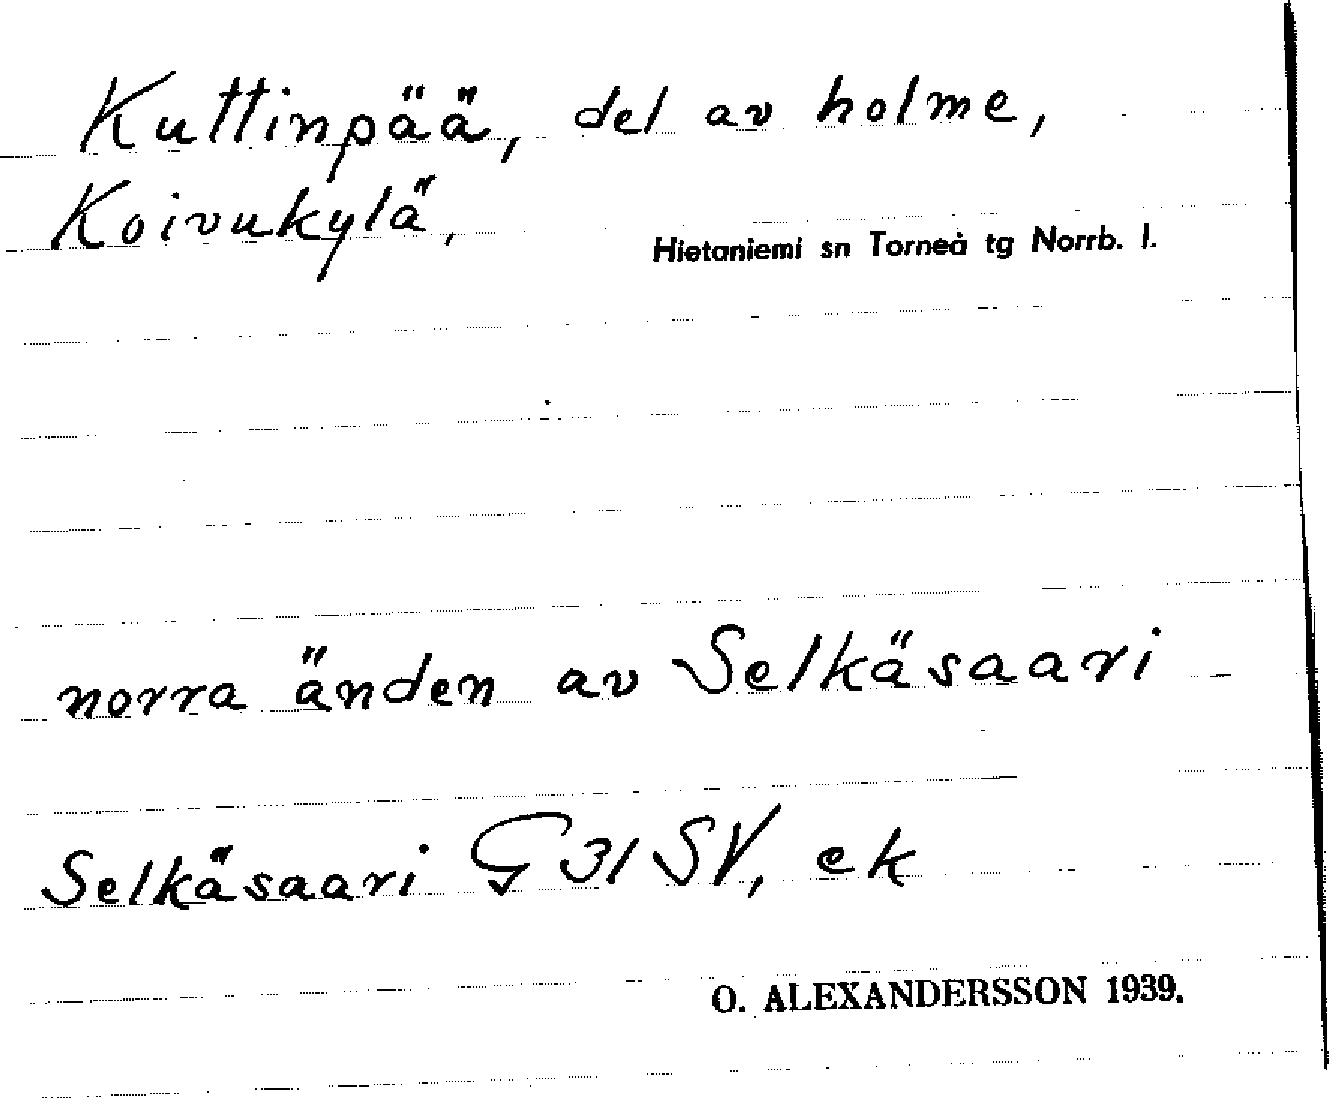 Kuttinpää, del av holme,
Koivukylä,
Hietaniemi sn Torneå tg Norrb. l.
norra änden av Selkäsaari
Selkäsaari G 31 SV, ek
O. ALEXANDERSSON 1939.